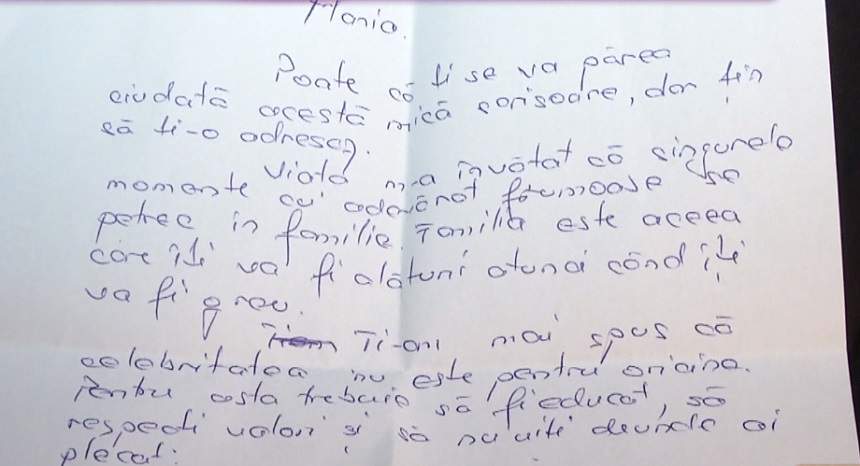 Maria.
Poate că ți se va părea
ciudată acestă mică scrisoare, dar țin
să ți-o adresez.
Viața m-a învățat că singurele
momente cu adevărat frumoase se
petrec in familie. Familia este aceea
care îți va fi alături atunci când îți
va fi greu.
Ti-am mai spus că
celebritatea nu este pentru oricine.
Pentru asta trebuie să fi educat, să
respecți valori și să nu uiti deunde ai
plecat.